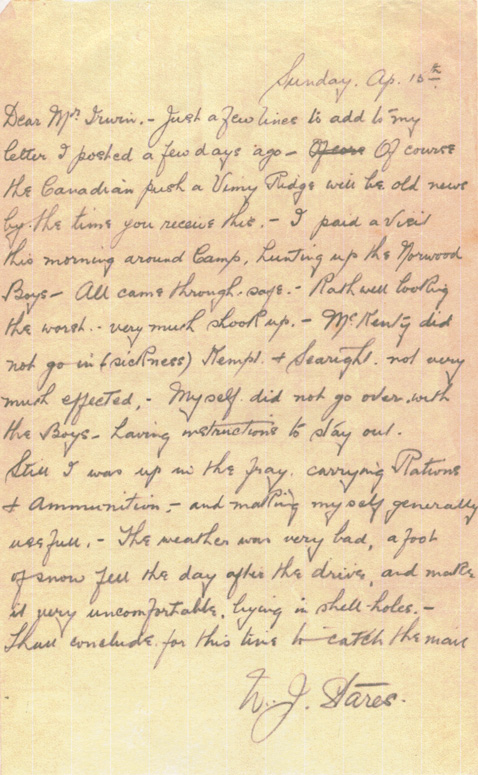 Sunday. Ap. 15th.
Dear Mrs Irwin. - Just a few lines to add to my
letter I posted a few days ago - Of course
the Canadian push a Vimy Ridge will be old news
by the time you receive this. - I paid a visit
this morning around Camp, hunting up the Norwood
Boys - All came through safe. - Rathwell looking
the worst. - very much shook up. - McKenty did
not go in (sickness) Kempt. & Searight. not very
much effected, - Myself did not go over with
the Boys - having instructions to stay out.
Still I was up in the fray, carrying Rations
& Ammunition, - and making myself generally
usefull. - The weather was very bad, a foot
of snow fell the day after the drive, and make
it very uncomfortable, lying in shell holes. -
I shall conclude for this time to catch the mail
W. J. Stares.